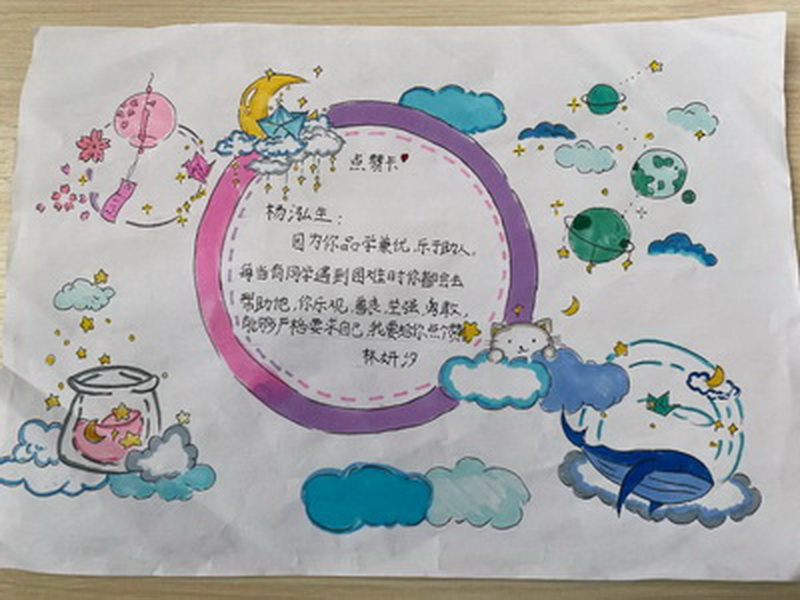 点赞卡
杨泓生:
因为你品学兼优,乐于助人,
每当有同学遇到困难时你都会去
帮助他,你乐观、善良、坚强、勇敢,
能够严格要求自己,我要给你点个赞
林妍汐